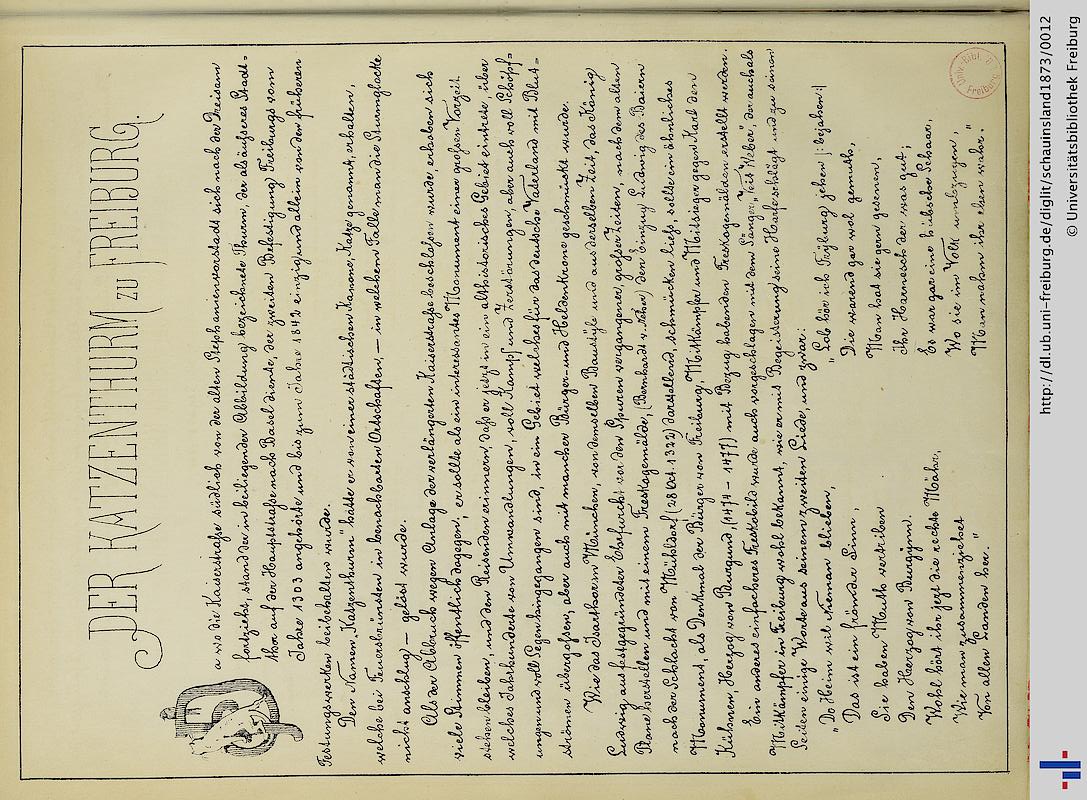 DER KATZENTHURM ZU FREIBURG.
Da wo die Kaiserstraße südlich von der alten Stephanienvorstadt sich nach der Dreisam
fortzieht, stand der in beiliegender Abbildung bezeichnete Thurm, der als äußeres Stadt=
thor auf der Hauptstraße nach Basel diente, der zweiten Befestigung Freiburgs vom
Jahre 1303 angehörte und bis zum Jahre 1842 einzig und allein von den früheren
Festungswerken beibehalten wurde.
Den Namen „Katzenthurm" hatte er von einer städtischen Kanone, Katze genannt, erhalten,
welche bei Feuersbrünsten in benachbarten Ortschaften, — in welchem Falle man die Sturmglocke
nicht anschlug — gelöst wurde.
Als der Abbruch wegen Anlage der verlängerten Kaiserstraße beschlossen wurde, erhoben sich
viele Stimmen öffentlich dagegen; er sollte als ein interessantes Monument einer großen Vorzeit
stehen bleiben, und den Reisenden erinnern, daß er jetzt in ein althistorisches Gebiet eintrete über
welches Jahrhunderte von Umwandlungen, voll Kampf und Zerstörungen, aber auch voll Schöpf=
ungen und voll Segen hingegangen sind, in ein Gebiet welches für das deutsche Vaterland mit Blut=
strömen übergossen, aber auch mit mancher Bürger- und Heldenkrone geschmückt wurde.
Wie das Isarthor in München, von demselben Baustyle und aus derselben Zeit, das König
Ludwig aus festgegründeter Ehrfurcht vor den Spuren vergangener großer Zeiten, nach dem alten
Plane herstellen und mit einem Freskogemälde, (Bernhardt v. Neher) den Einzug Ludwig des Baiern
nach der Schlacht von Mühldorf (28 Oct. 1322) darstellend, schmücken ließ, sollte ein ähnliches
Monument, als Denkmal der Bürger von Freiburg, Mitkämpfer und Mitsieger gegen Karl den
Kühnen, Herzog von Burgund, (1474 – 1477) mit Bezug habenden Freskogemälden erstellt werden.
Ein anderes einfacheres Freskobild wurde auch vorgeschlagen mit dem Sänger „Veit Weber", der auch als
Mitkämpfer in Freiburg wohl bekannt, wie er mit Begeisterung seine Harfe schlägt und zu seinen
Seiten einige Worte aus seinem zweiten Liede, und zwar:
„Do Heim wil Nieman blieben,
Das ist ein fröndar Sinn,
Sie haben Muth vertriben
Den Herzog von Burggyn.
Wohl hört ihr jezt die rechte Mähr,
Wie man zusammenziehet
Von allen Landen her."
„Lob hör ich Fryburg jehen |: bejahen :|
Die warend gar wol gemuth,
Man hat sie gern gesenen,
Ihr Harnesch der was gut;
Es war gar eine hübsche Schaar,
Wo sie im Volk umbzugen,
Man nahm ihr eben wahr."
Univ.-Bibl.
Freiburg
http://dl.ub.uni-freiburg.de/diglit/schauinsland1873/0012
© Universitätsbibliothek Freiburg